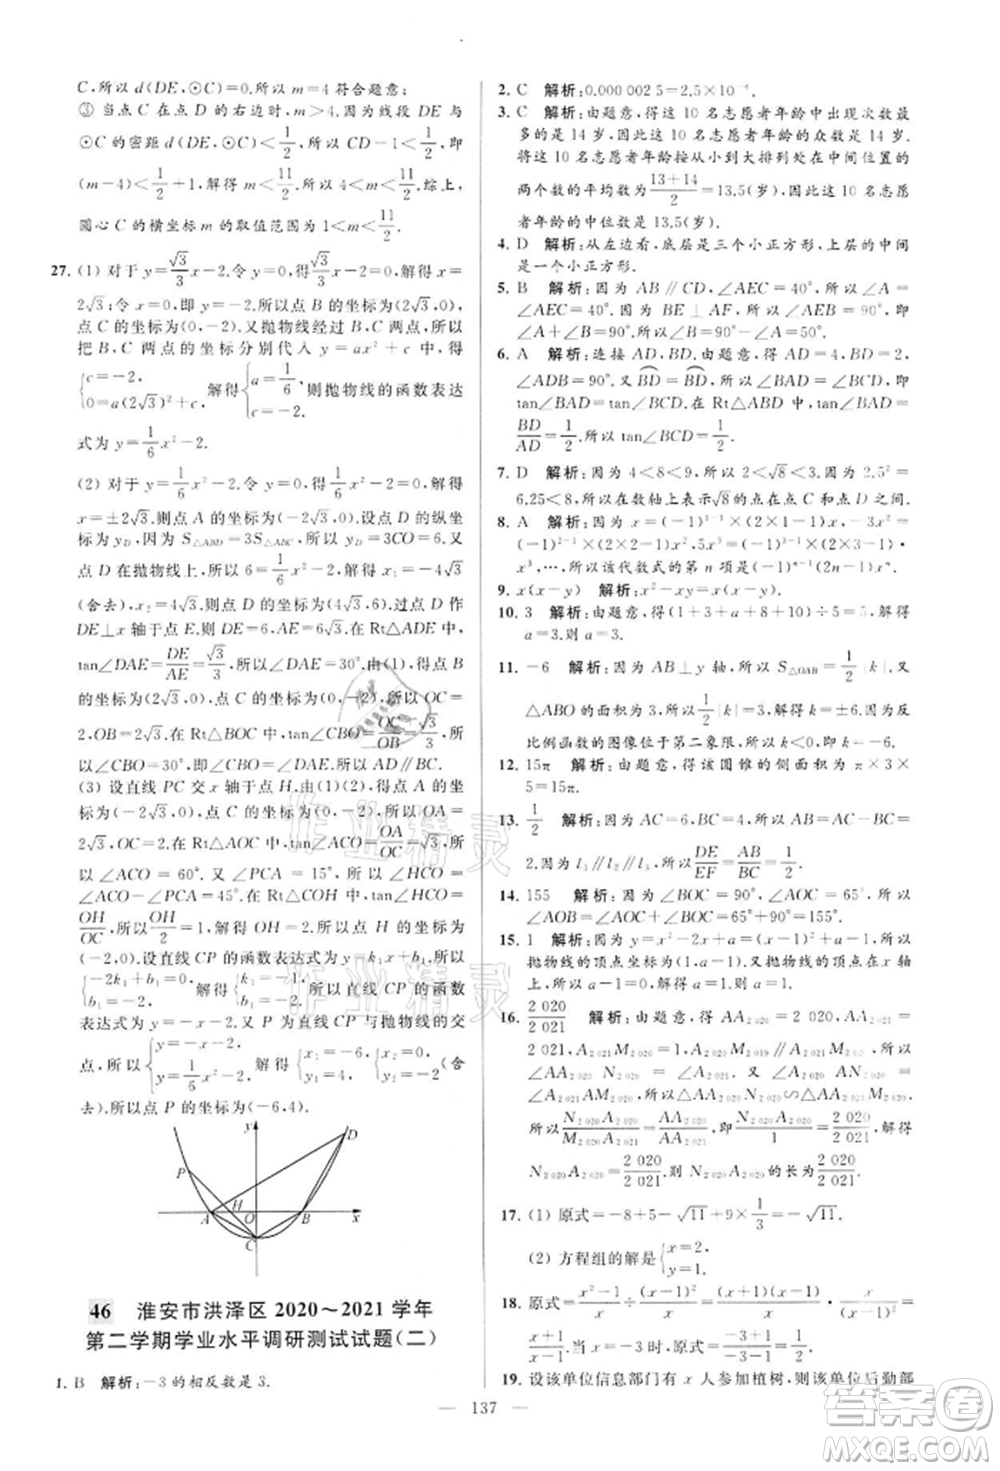 C,所以 d(DE,⊙C)<1/2,所以 m=4 符合题意;
③ 当点 C 在点 D 的右边时,m>4.因为线段 DE 与
⊙C 的密距 d(DE,⊙C)<1/2,所以 CD-1<1/2,即
(m-4)<1/2+1,解得 m<11/2,所以 4<m<11/2.综上,
圆心 C 的横坐标 m 的取值范围是 1<m<11/2.
27. (1) 对于 y=√3/3x-2,令 y=0,即 √3/3x-2=0,解得 x=
2√3;令 x=0,即 y=-2,所以点 B 的坐标为(2√3,0),
点 C 的坐标为(0,-2).又抛物线经过 B,C 两点,所以
把 B,C 两点的坐标分别代入 y=ax²+c,得
{c=-2, 0=a(2√3)²+c, 解得 {a=1/6, c=-2, 则抛物线的函数表达
式为 y=1/6x²-2.
(2) 对于 y=1/6x²-2,令 y=0,则 1/6x²-2=0,解得
x=±2√3,则点 A 的坐标为(-2√3,0).设点 D 的纵坐
标为 y_D,因为 S△ABD=3S△ABC,所以 y_D=3OC=6.又
点 D 在抛物线上,所以 6=1/6x²-2,解得 x₁=-4√3
(舍去),x₂=4√3,则点 D 的坐标为(4√3,6).过点 D 作
DE⊥x 轴于点 E,则 DE=6,AE=6√3.在 Rt△ADE 中,
tan∠DAE=DE/AE=√3/3,所以∠DAE=30°.由(1),得点 B
的坐标为(2√3,0),点 C 的坐标为(0,-2),所以 OC=
2,OB=2√3.在 Rt△BOC 中,tan∠CBO=OC/OB=√3/3,所以
∠CBO=30°,所以∠CBO=∠DAE,所以 AD∥BC.
(3) 设直线 PC 交 x 轴于点 H.由(1)(2),得点 A 的坐标为
(-2√3,0),点 C 的坐标为(0,-2),所以 OA=
2√3,OC=2.在 Rt△AOC 中,tan∠ACO=OA/OC=√3,所以
∠ACO=60°.又∠PCA=15°,所以∠HCO=
∠ACO-∠PCA=45°.在 Rt△COH 中,tan∠HCO=
OH/OC,所以 OH/2=1,解得 OH=2,所以点 H 的坐标为
(-2,0).设直线 CP 的函数表达式为 y=k₁x+b₁,得
{-2k₁+b₁=0, b₁=-2, 解得 {k₁=-1, b₁=-2, 所以直线 CP 的函数
表达式为 y=-x-2.因为直线 CP 与抛物线的交
点,所以 {y=1/6x²-2, y=-x-2, 解得 {x₁=-6, y₁=4, {x₂=0, y₂=-2 (舍
去),所以点 P 的坐标为(-6,4).
y
D
P
H
A
O
B
x
C
46 淮安市洪泽区 2020～2021 学年
第二学期学业水平调研测试试题(二)
1. B 解析:-3 的相反数是 3.
2. C 解析:0.000 002 5=2.5×10⁻⁶.
3. C 解析:由题意,得这 10 名志愿者年龄中出现次数最
多的是 14 岁,所以这 10 名志愿者年龄的众数是 14 岁.
将这 10 名志愿者年龄按从小到大排列处在中间位置的
两个数的平均数为 13+14/2=13.5(岁),因此这 10 名志愿
者年龄的中位数是 13.5(岁).
4. D 解析:从左边看,底层是三个小正方形,上层的中间
是一个小正方形.
5. B 解析:因为 AB∥CD,∠AEC=40°,所以∠A=
∠AEC=40°.因为 BE⊥AF,所以∠ABE=90°,所以
∠A+∠B=90°,所以∠B=90°-∠A=50°.
6. A 解析:连接 AD,BD.由题意,得 AB 为直径,所以
∠ADB=90°.又BD=BD,所以∠BAD=∠BCD,即
tan∠BAD=tan∠BCD.在 Rt△ABD 中,tan∠BAD=
BD/AD=1/2,所以 tan∠BCD=1/2.
7. D 解析:因为 4<8<9,所以 2<√8<3.又 2.5²=
6.25<8,所以在数轴上表示√8的点在点 CD 之间.
8. A 解析:因为 x=(-1)¹⁻¹×(2×1-1)·x¹,-3x²=
(-1)²⁻¹×(2×2-1)·x²,5x³=(-1)³⁻¹×(2×3-1)·
x³,…,所以该代数式的第 n 项是(-1)ⁿ⁻¹(2n-1)xⁿ.
9. x(x-y) 解析:x²-xy=x·x-x·y=x(x-y).
10. 3 解析:由题意,得(1+3+a+6+2)÷5=a,解得
a=3.则 a=3.
11. -6 解析:因为 AB⊥y 轴,所以 S△OAB=1/2|k|.又
△ABO 的面积为 3,所以1/2|k|=3,解得 k=±6.因为反
比例函数的图像位于第二象限,所以 k=-6.
12. 15π 解析:由题意,得该圆锥的侧面积为 π×3×
5=15π.
13. 1/2 解析:因为 AC=6,BC=4,所以 AB=AC-BC=
2.因为 l₁∥l₂∥l₃,所以DE/EF=AB/BC=2/4=1/2.
14. 155 解析:因为∠BOC=90°,∠AOC=65°,所以
∠AOB=∠AOC+∠BOC=65°+90°=155°.
15. 1 解析:因为 y=x²-2x+a=(x-1)²+a-1,所以
抛物线的顶点坐标为(1,a-1).因为顶点在 x 轴
上,所以 a-1=0,解得 a=1.
16. 2 020/2 021 解析:由题意,得 AA₂₀₂₀=2 020,AA₂₀₂₁=
2 021,A₂₀₂₁M₂₀₂₀=1,A₂₀₂₀M₂₀₁₉∥A₂₀₂₁M₂₀₂₀,所以
∠AA₂₀₂₀N₂₀₂₀=∠AA₂₀₂₁M₂₀₂₀,∠AN₂₀₂₀A₂₀₂₀=
∠AM₂₀₂₀A₂₀₂₁,所以△AA₂₀₂₀N₂₀₂₀∽△AA₂₀₂₁M₂₀₂₀,
所以N₂₀₂₀A₂₀₂₀/M₂₀₂₀A₂₀₂₁=AA₂₀₂₀/AA₂₀₂₁,即N₂₀₂₀A₂₀₂₀/1=2 020/2 021,所以
N₂₀₂₀A₂₀₂₀=2 020/2 021,则 N₂₀₂₀A₂₀₂₀的长为2 020/2 021.
17. (1) 原式=-8+5-√11+9×1/3=-√11.
(2) 方程组的解是{x=2, y=1.
18. 原式=x²-1/x÷x-1/x=(x+1)(x-1)/x·x/x-1=
x+1.当 x=√2-1 时,原式=√2-1+1=√2.
19. 设该单位信息部门有 x 人参加植树,则该单位后勤部
137
作业精灵
作业精灵
答案圈
MXQE.COM